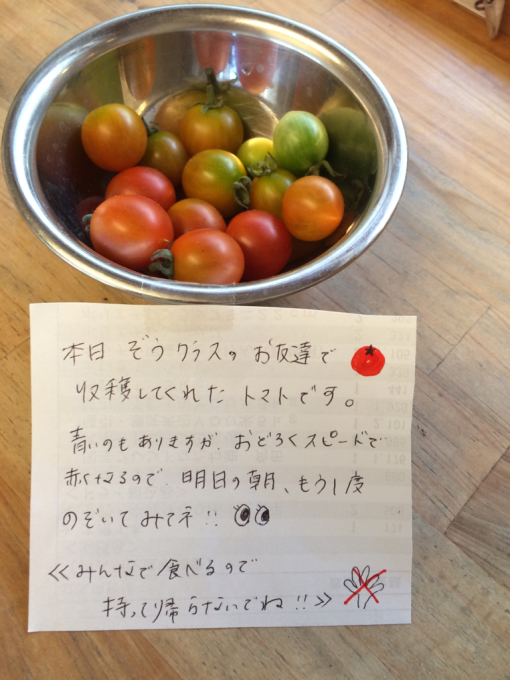 本日 ぞうクラスの お友達で
収穫してくれた トマトです。
青いのもありますが、おどろくスピードで
赤くなるので、明日の朝、もう1度
のぞいてみてネ!!
≪みんなで食べるので
持って帰らないでね!!≫